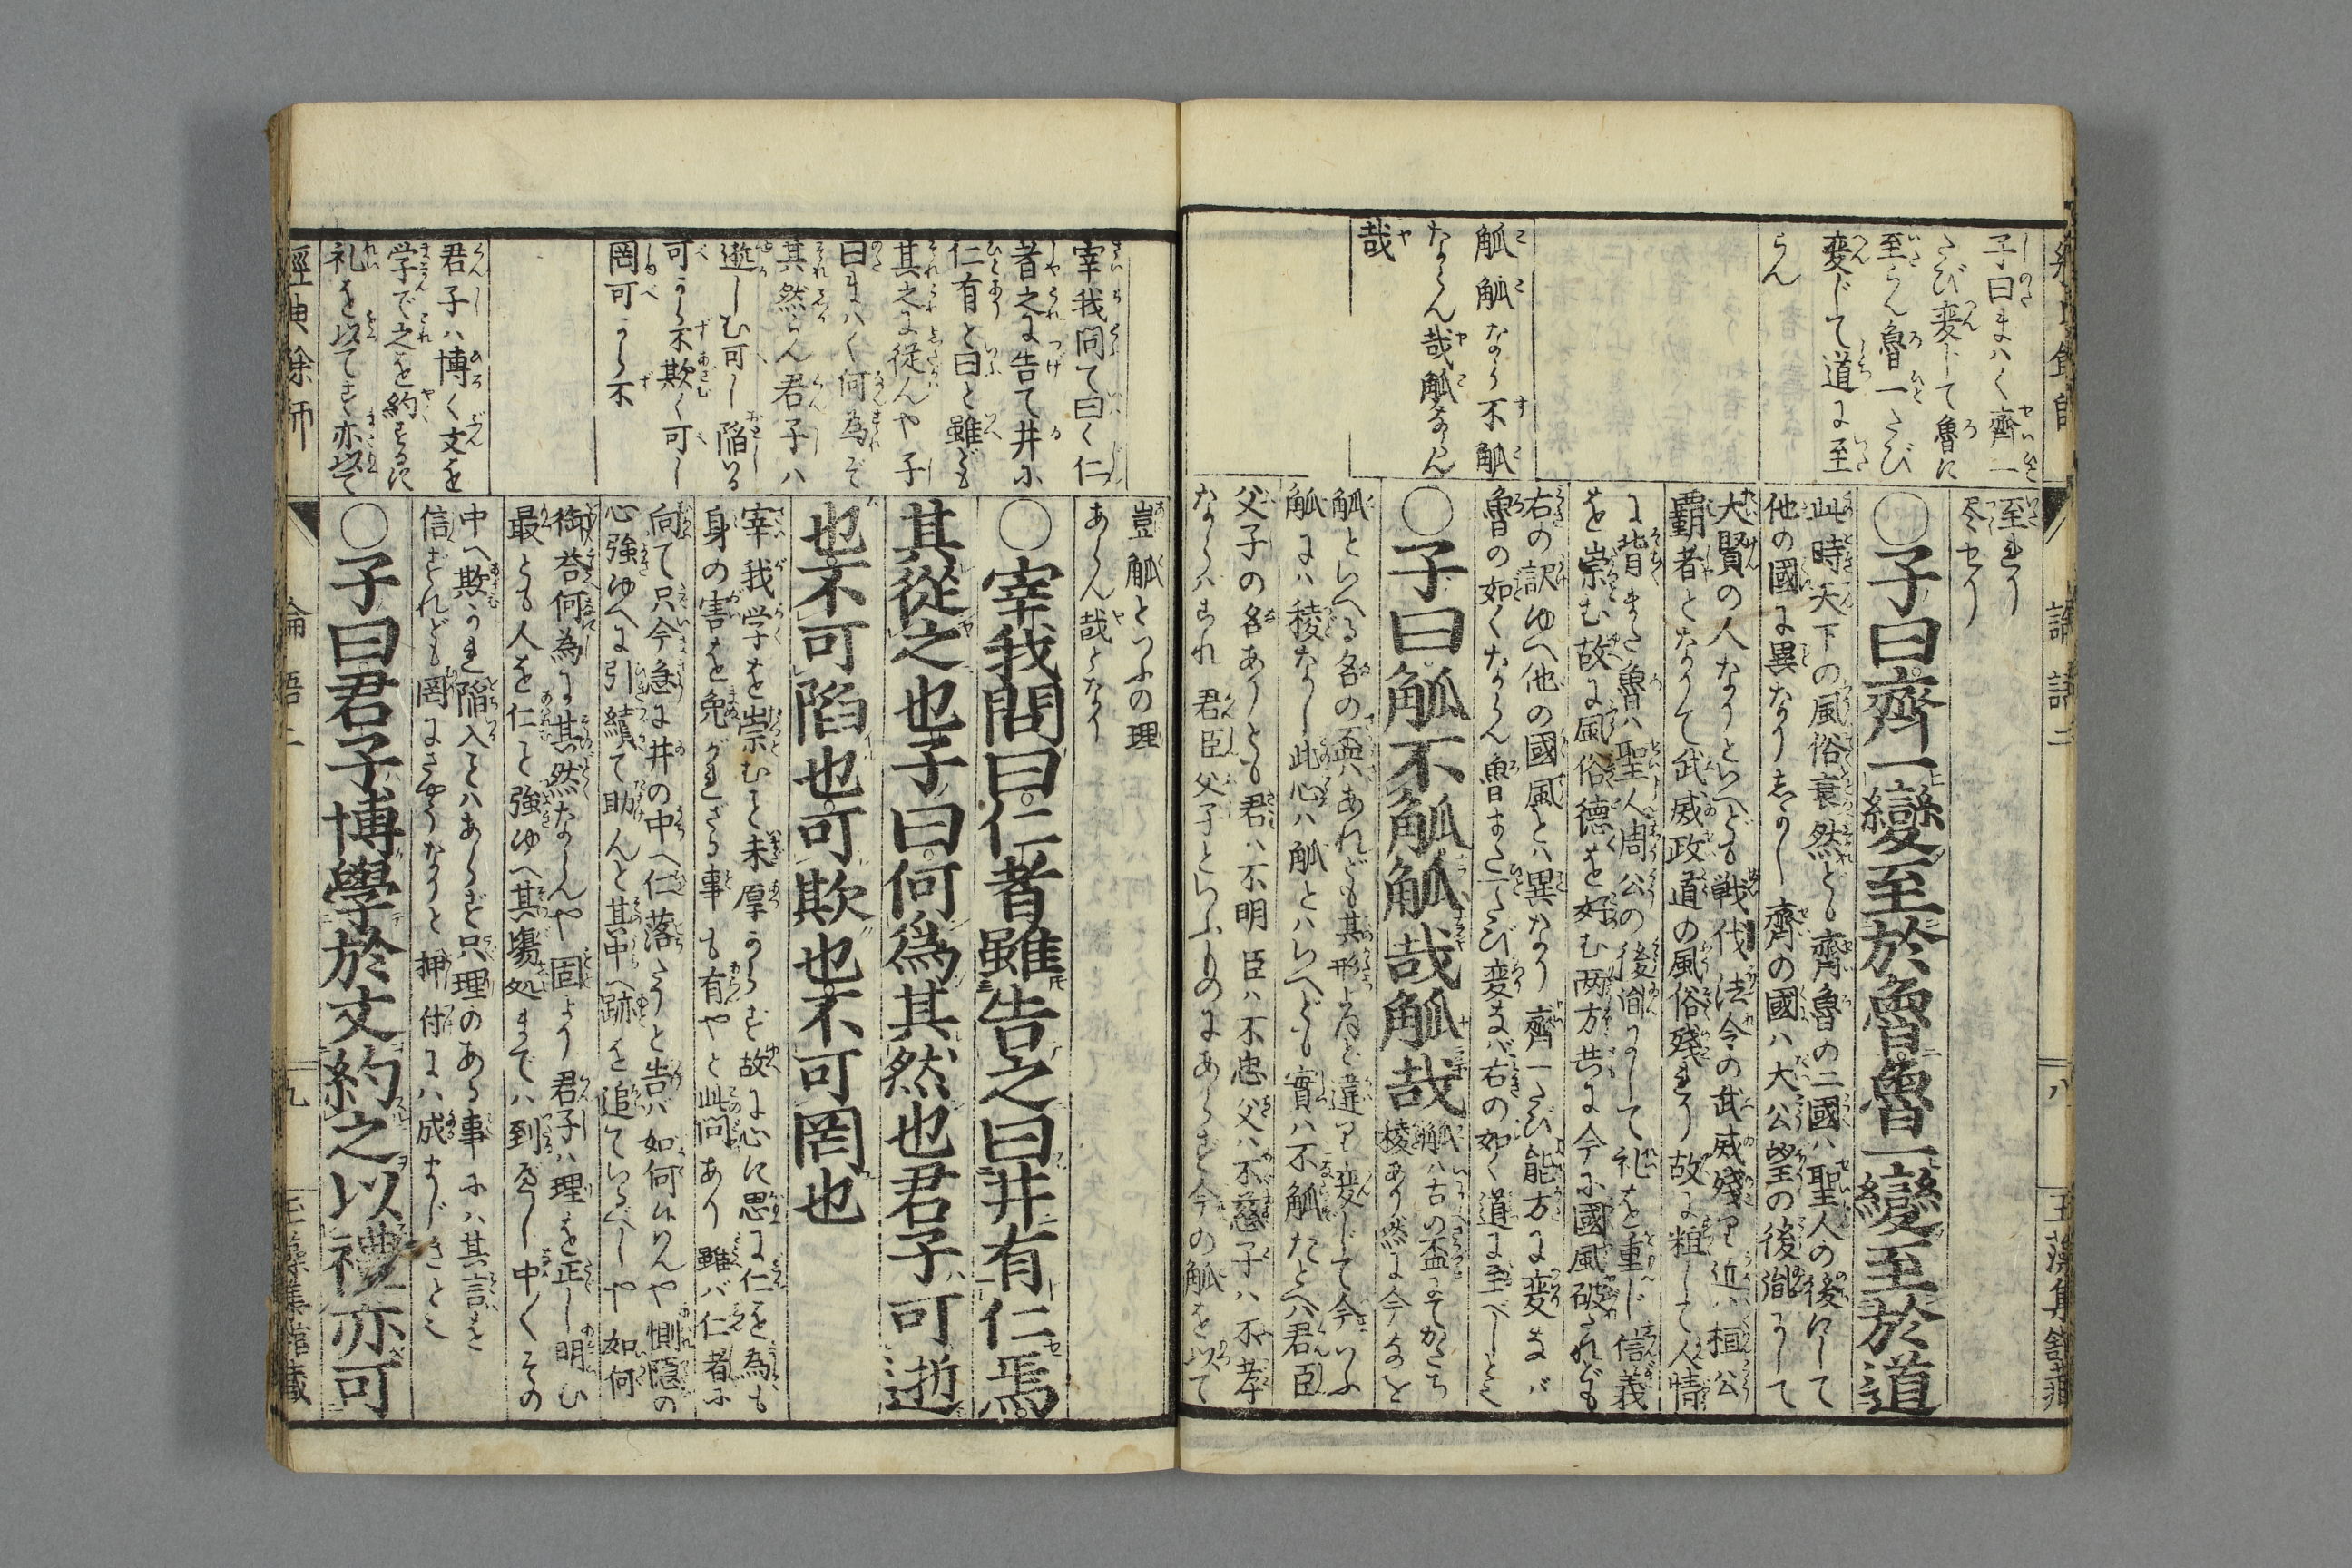 子曰まはく齊一
たび変じて魯に
至らん魯一たび
変じて道に至
らん
觚觚ならず不觚
ならん哉觚ならん
哉
至れり
尽せり
○子曰齊一變至於魯魯一變至於道
此時天下の風俗衰然ども齊魯の二國ハ聖人の後にして
他の國に異なり 齊の國ハ大公望の後胤にして
大賢の人なりといへども戦伐法令の武威残り近ハ桓公
覇者となりて武威政道の風俗残れり故に粗して人情
に背また魯ハ聖人周公の後胤にして礼を重じ信義
を崇む故に風俗德を好む両方共に今ハ國風破たれども
右の訳ゆへ他の國風とハ異なり齊一たび能方に変ぜバ
魯の如くならん魯また一たび変ぜバ右の如く道に至べしと也
○子曰觚不觚觚哉觚哉
觚ハ古の盃にてかたち
稜あり然に今なを
觚といへる名の盃ハあれども其形ほど違ひ変じて今いふ
觚にハ稜なし此心ハ觚とハいへども實ハ不觚たとへバ君臣
父子の名ありとも君ハ不明臣ハ不忠父ハ不慈子ハ不孝
ならハこれ君臣父子といふものにあらず今の觚を以て
論語二
八
豈觚といふの理
あらん哉となり
宰我問て曰く仁
者之に告て井に
仁有と曰と雖ども
其之に從んや子
曰まハく何為ぞ
其然らん君子ハ
逝しむ可し陥る
可からず欺く可し
罔可からず
君子ハ博く文を
学で之を約するに
礼を以てす亦以て
○宰我問曰仁者雖告之曰井有仁焉
其從之也子曰何爲其然也君子可逝
也不可陷也可欺也不可罔也
宰我学を崇むと未厚からず故に心に思に仁を為も
身の害を免がれざる事も有やと此問あり雖バ仁者に
向て只今急に井の中へ仁落たりと告バ如何せんや惻隠の
心強ゆへに引續て助んと其中へ跡を追ているべしや如何
御荅何為ぞ其然ならんや固より君子ハ理を正し明む
最とも人を仁と強ゆへ其塲処までハ到るべし中〳〵その
中へ欺かれ陥入とハあらず只理のある事にハ其言を
信ずれども罔にさやうなりと押付にハ成まじきと也
○子曰君子博學於文約之以禮亦可
經典餘師
論語二
九